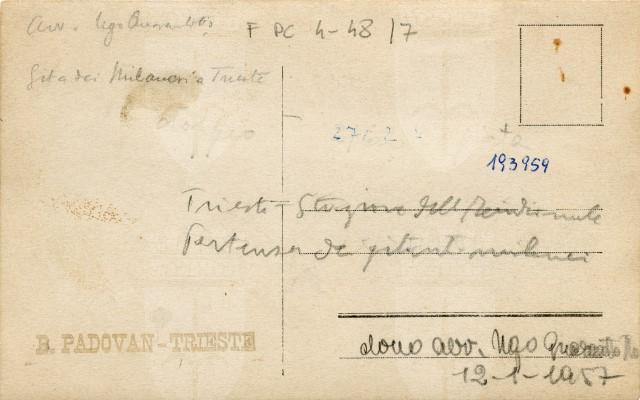 avv. Ugo Quarantotto
F PC 4-48/7
Gita dei Milanesi a Trieste
doppio
193959
Trieste - Stazione della Meridionale
Partenza dei gitanti milanesi
B. PADOVAN - TRIESTE
dono avv. Ugo Quarantotto
12-1-1957